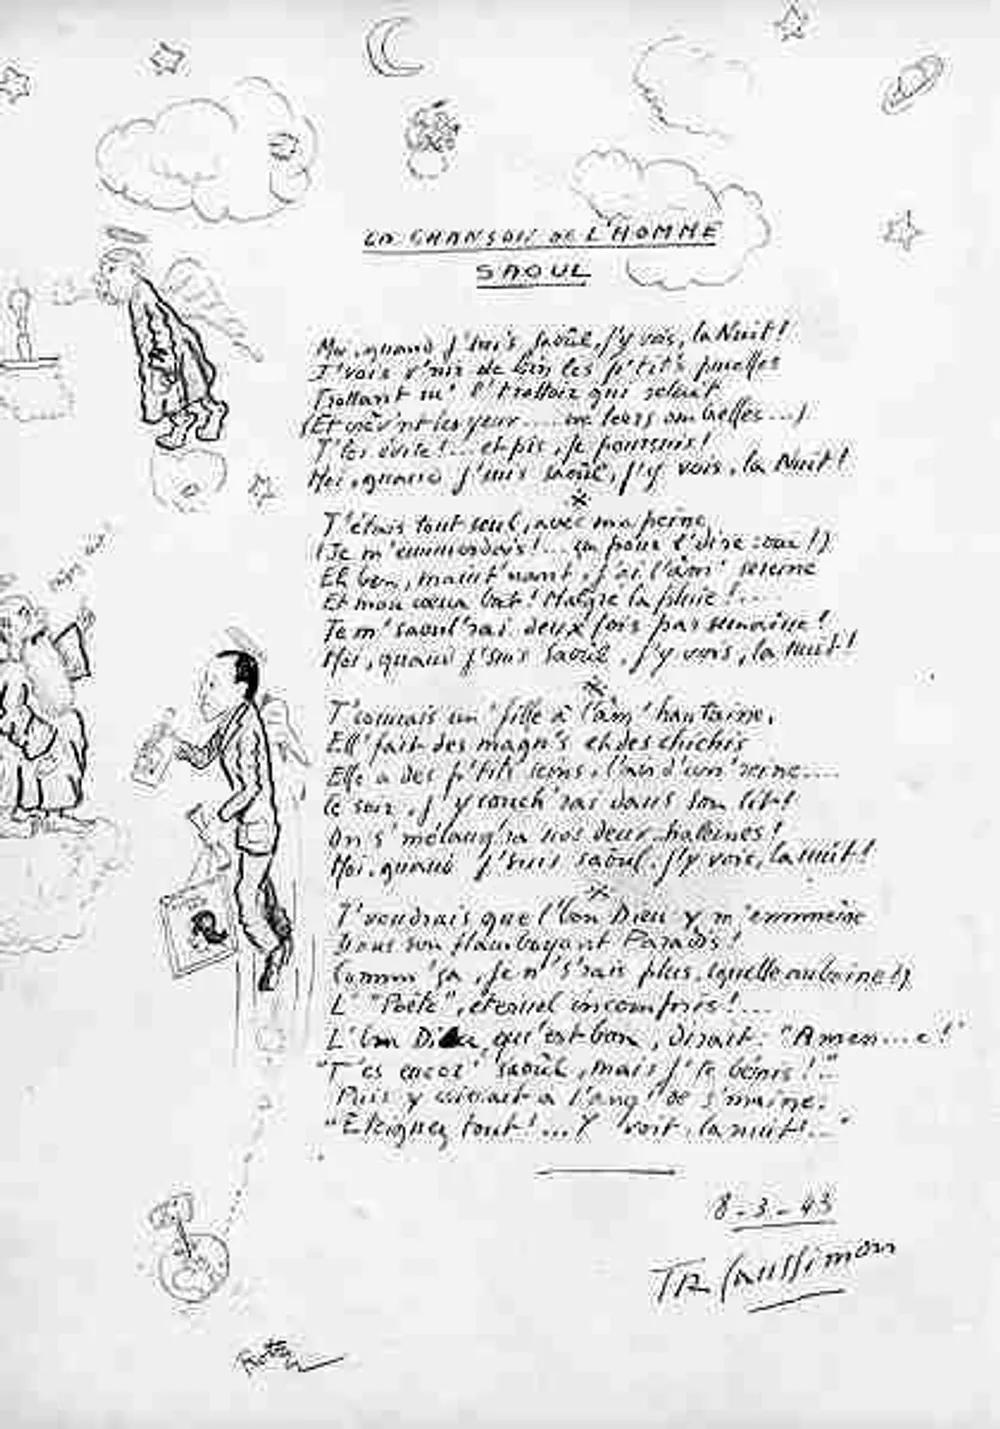 LA CHANSON DE L'HOMME
SAOUL
Moi, quand j'suis saoûl, j'y vois, la Nuit!
J'vois v'nir de loin les p'tit's pucelles
Trottant su' l'trottoir qui reluit
(Et crèv'nt les yeux..... leurs ombrelles...)
J'les évite!... et pis, je poursuis!
Moi, quand j'suis saoûl, j'y vois, la Nuit!
J'étais tout seul, avec ma peine,
(Je m'emmerdais!... pour l'dire: oui!)
Eh ben, maint'nant, j'ai l'âm' sereine
Et mon cœur bat! Malgré la pluie!....
Je m'saoul'rai deux fois par semaine!
Moi, quand j'suis saoûl, j'y vois, la Nuit!
J'connais un' fille à l'âm' hautaine,
Ell' fait des magn's et des chichis
Elle a des p'tits seins, l'air d'un' reine....
Ce soir, j'y couch'rai dans son lit!
On s'mélang'ra nos deux haleines!
Moi, quand j'suis saoûl, j'y vois, la nuit!
J'voudrais que l'bon Dieu y m'emmène
Dans son flamboyant Paradis!
Comm' ça, je n's'rais plus, (quelle aubaine!)
L' "Poète", éternel incompris!...
L'bon Dieu qu'est bon, dirait: "Amen...e!
"T'es encor' saoûl, mais j'te bénis!.."
Puis y crierait à l'ang' de s'maine:
"Eteignez tout!... Y voit, la nuit!..."
8-3-43
J R Caussimon